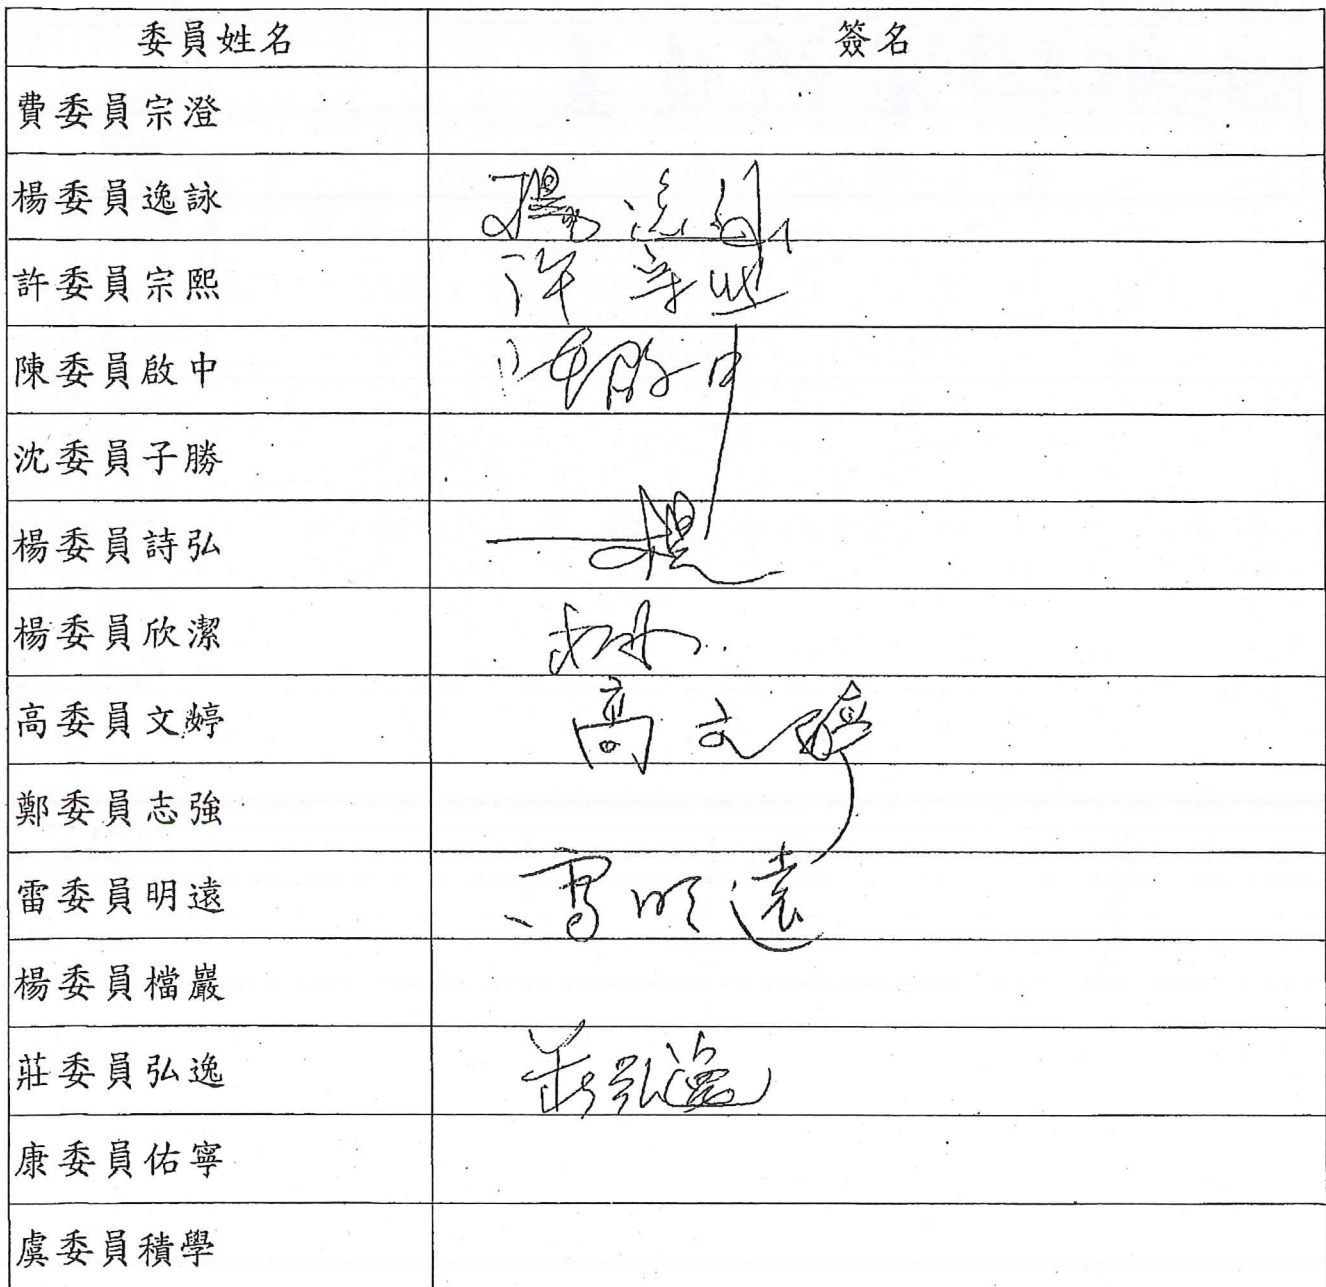 委員姓名 簽名
費委員宗澄
楊委員逸詠 楊逸詠
許委員宗熙 許宗熙
陳委員啟中 陳啟中
沈委員子勝
楊委員詩弘 楊
楊委員欣潔
高委員文婷 高文婷
鄭委員志強
雷委員明遠 雷明遠
楊委員檔巖
莊委員弘逸 莊弘逸
康委員佑寧
虞委員積學